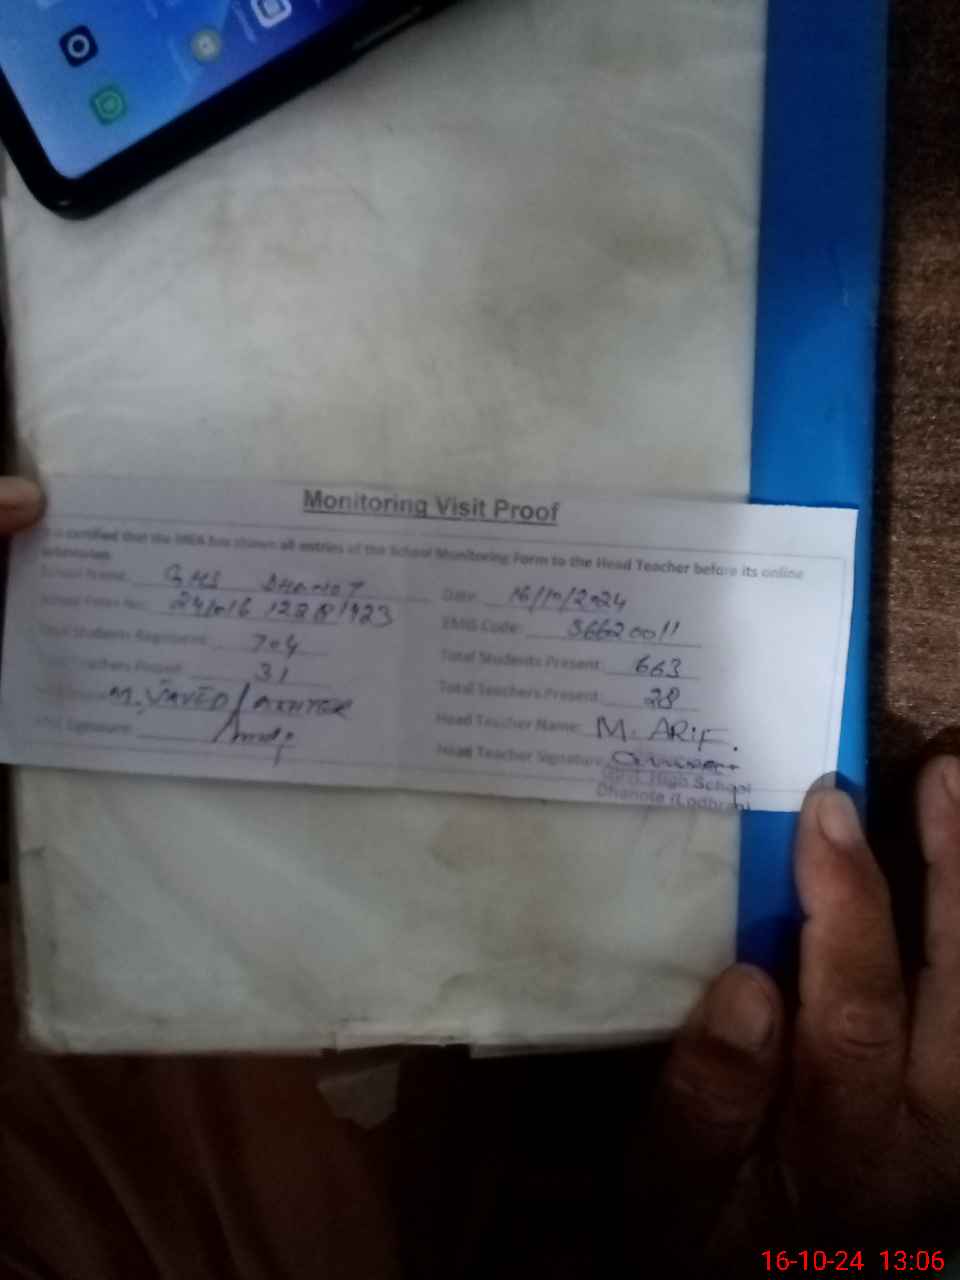 Monitoring Visit Proof
certified that the MEA has shown all entries of the School Monitoring Form to the Head Teacher before its online
submission.
School Name: GHS DHANOT Date: 16/10/2024
EMIS Code: 36620011
Total Students Registered: 704 Total Students Present: 663
Total Teachers Posted: 31 Total Teachers Present: 28
M. JAVED AKHTER Head Teacher Name: M. ARIF.
Signature: Head Teacher Signature:
Govt. High School
Dhanote (Lodhran)
16-10-24 13:06